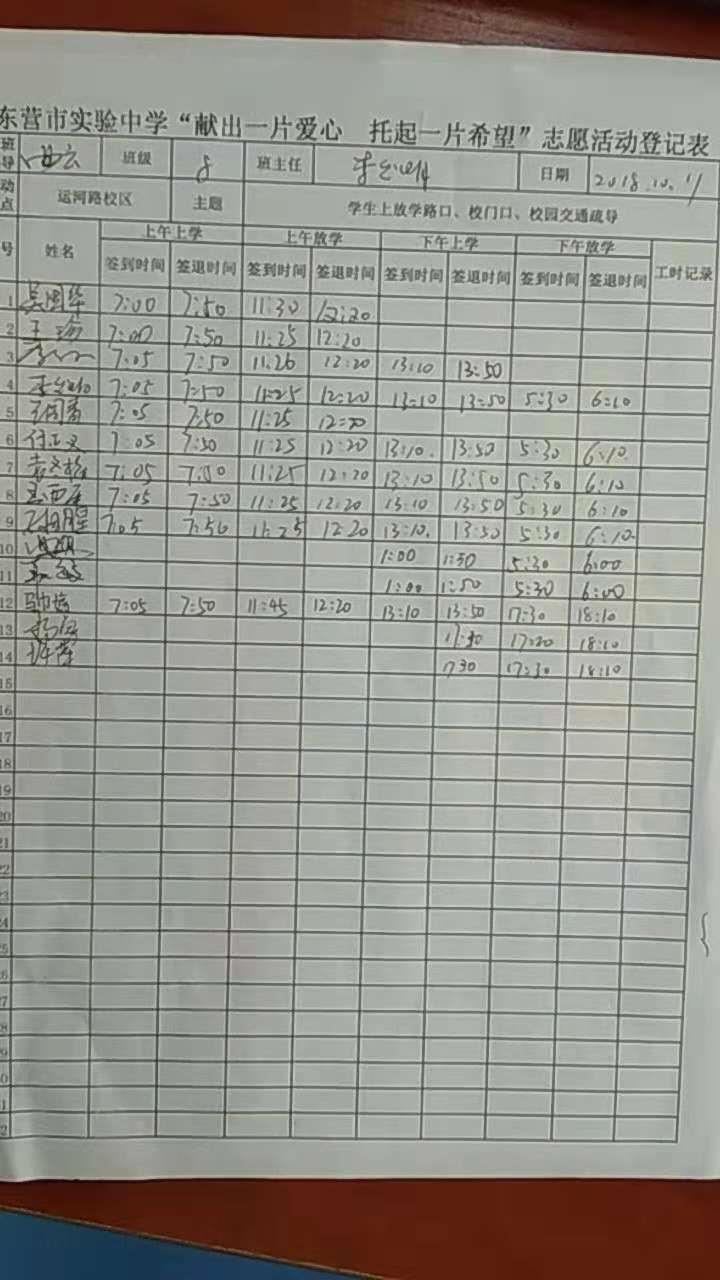 东营市实验中学“献出一片爱心 托起一片希望”志愿活动登记表
班 导 班级 8 班主任 日期 2018.10.
动 点 运河路校区 主题 学生上放学路口、校门口、校园交通疏导
号 姓名 上午上学 上午放学 下午上学 下午放学 工时记录
签到时间 签退时间 签到时间 签退时间 签到时间 签退时间 签到时间 签退时间
1 7:00 7:50 11:30 12:20
2 7:00 7:50 11:25 12:20
3 7:05 7:50 11:26 12:20 13:10 13:50
4 7:05 7:50 11:25 12:20 13:10 13:50 5:30 6:10
5 7:05 7:50 11:25 12:20
6 7:05 7:50 11:25 12:20 13:10. 13:50 5:30 6:10.
7 7:05 7:50 11:25 12:20 13:10 13:50 5:30 6:10
8 7:05 7:50 11:25 12:20 13:10 13:50 5:30 6:10
9 7:05 7:50 11:25 12:20 13:10. 13:50 5:30 6:10.
10 1:00 1:50 5:30 6:00
11 1:00 1:50 5:30 6:00
12 7:05 7:50 11:45 12:20 13:10 13:50 17:30 18:10
13 17:20 18:10
14 1730 17:30 18:10
15
16
17
18
19
20
21
22
23
24
25
26
27
28
29
0
1
2